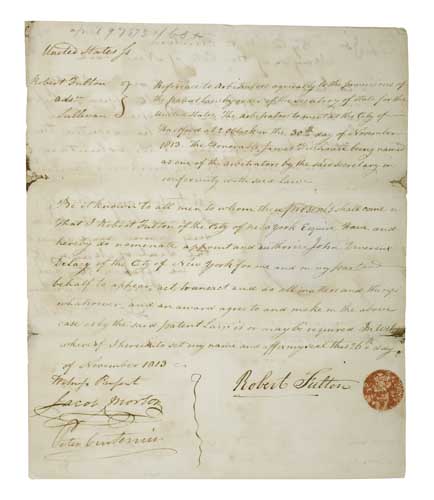 United States ss
Robert Fulton
ads
Sullivan
Reference to Arbitrators agreeably to the provisions of
the patent law by order of the Secretary of State for the
United States, The Arbitrators to meet at the City of
Hartford at 2 oClock on the 30th day of November
1813. The Honorable being named
as one of the arbitrators by the said secretary in
conformity with said Law.
Be it known to all men to whom these presents shall come
That I Robert Fulton of the City of New York Esquire Have and
hereby do nominate appoint and authorise John
Delacy of the City of New York for me and in my part and
behalf to appear, act, transact and do all matters and things
whatsoever, and an award agree to and make in the above
case as by the said Patent Law is or may be required In Witness
whereof I hereunto set my name and affix my seal this 26th day
of November 1813
Witness Present
Robert Fulton
Jacob Morton
Peter